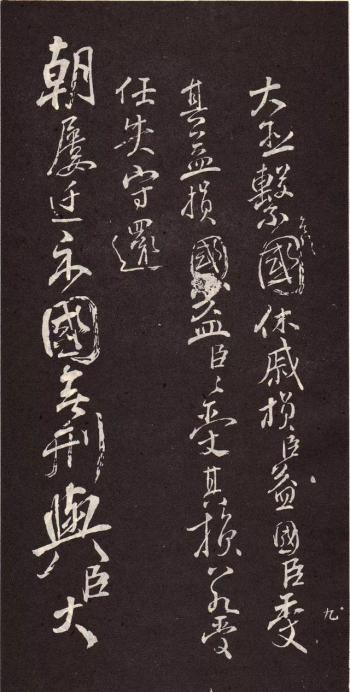 大臣繫國休戚損臣益國臣受
其益損國益臣〻受其損
任失守還
朝屢迁示國無刑與臣大
九